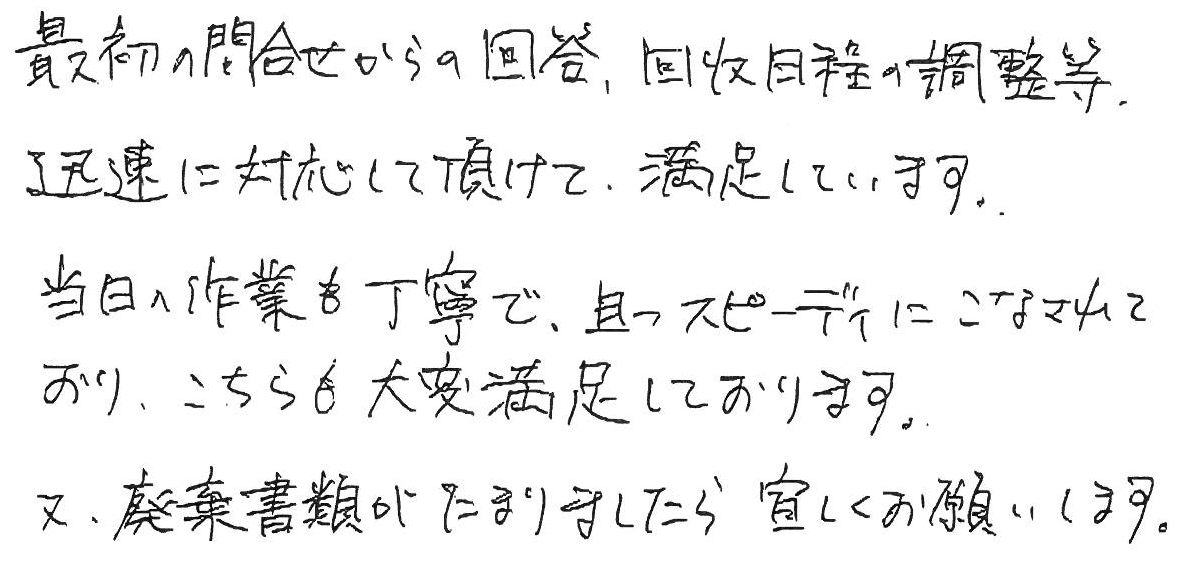 最初の問合せからの回答、回収日程の調整等、
迅速に対応して頂けて、満足しています。
当日の作業も丁寧で、且つスピーディにこなされて
おり、こちらも大変満足しております。
又、廃棄書類がたまりましたら宜しくお願いします。